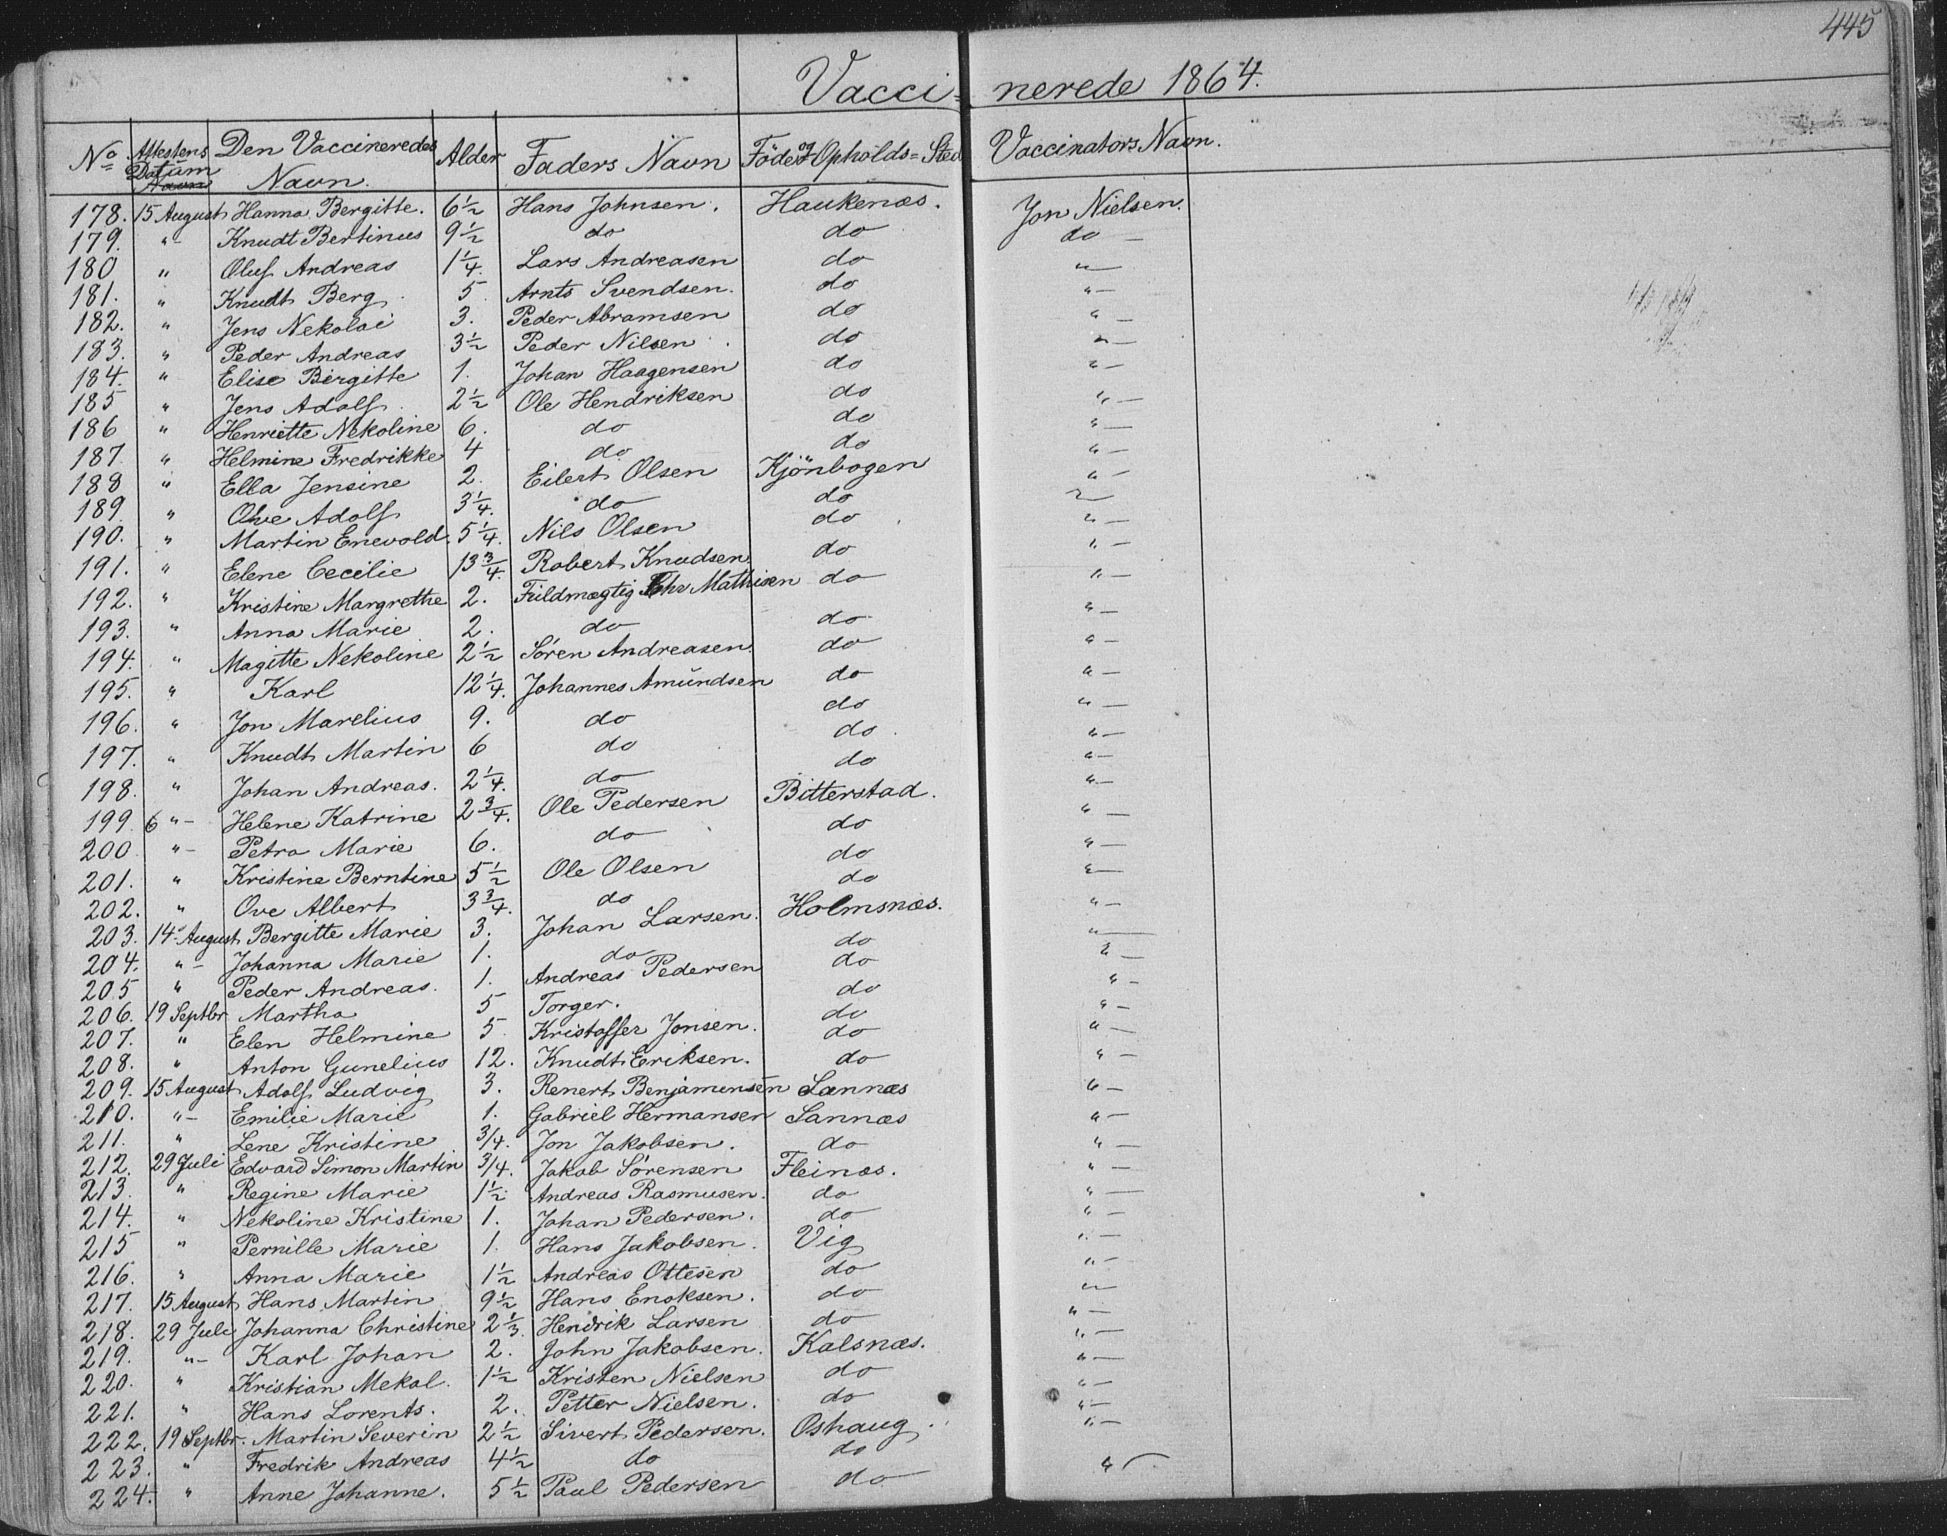 445
Vacci= nerede 1864.
No Attestens Datum Navn Den Vaccineredes Navn. Alder Faders Navn Föde og Opholds=Sted Vaccinators Navn.
178. 15 August Hanna Bergitte. 6 1/2 Hans Johnsen. Haukenæs. Jon Nielsen.
179. "- Knudt Bertinus 9 1/2 do do do —
180 " Oluf Andreas 1 1/4. Lars Andreasen do "—
181. " Knudt Berg 5 Arnts Svendsen. do "—
182. " Jens Nekolai 3. Peder Abramsen do "—
183. " Peder Andreas 3 1/2 Peder Nilsen. do "—
184. " Elise Birgitte 1. Johan Haagensen do "—
185 " Jens Adolf. 2 1/2 Ole Hendriksen do "—
186 " Henriette Nekoline 6. do do "—
187. " Helmine Fredrikke 4 do do "—
188 " Ella Jensine 2. Eilert Olsen Kjönbogen "—
189. " Ove Adolf 3 1/4. do do "—
190. " Martin Enevold. 5 1/4. Nils Olsen do "—
191. " Elene Cecilie 13 3/4. Robert Knudsen do "—
192. " Kristine Margrethe 2. Fuldmægtig Chr Mathisen do "—
193. " Anna Marie 2. do do "—
194. " Magitte Nekoline 2 1/2 Søren Andreasen do "—
195. " Karl 12 1/4. Johannes Amundsen do "—
196. " Jon Marelius 9. do do "—
197. " Knudt Martin 6 do do "—
198. " Johan Andreas. 2 1/4. do do "—
199. 6 "- Helene Katrine 2 3/4. Ole Pedersen Bitterstad. "—
200 "- Petra Marie 6. do do "—
201. " Kristine Berntine 5 1/2 Ole Olsen do "—
202. " Ove Albert 3 3/4. do do "—
203. 14. August Bergitte Marie 3. Johan Larsen. Holmsnæs. "—
204. "- Johanna Marie 1. do do "—
205 " Peder Andreas. 1. Andreas Pedersen do "—
206. 19 Septbr Martha 5 Torger. do "—
207. " Elen Helmine 5. Kristoffer Jonsen. do "—
208. " Anton Gunelius 12. Knudt Eriksen. do "—
209. 15 August Adolf Ludvig 3. Renert Benjamensen Sannæs "—
210. "- Emilie Marie 1. Gabriel Hermansen Sannæs "—
211. " Lene Kristine 3/4. Jon Jakobsen. do "—
212. 29 Juli Edvard Simon Martin 3/4. Jakob Sørensen Fleinæs. "—
213. " Regine Marie 1 1/2. Andreas Rasmusen. do "—
214. " Nekoline Kristine 1. Johan Pedersen. do "—
215 " Pernille Marie 1. Hans Jakobsen. Vig "—
216. " Anna Marie 1 1/2 Andreas Ottesen do "—
217. 15 August Hans Martin 9 1/2 Hans Enoksen. do "—
218. 29 Juli Johanna Christine 2 1/3 Hendrik Larsen do "—
219. "- Karl Johan 2. John Jakobsen. Kalsnæs. "—
220. " Kristian Mekal. 1 1/2 Kristen Nielsen do "—
221. " Hans Lorents. 2. Petter Nielsen. do "—
222. 19 Septbr. Martin Severin 2 1/2 Sivert Pedersen. Oshaug "—
223. " Fredrik Andreas 4 1/2 do do "—
224. " Anne Johanne. 5 1/2 Paul Pedersen do